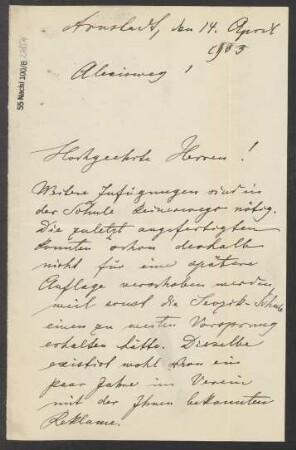 Arnstadt, den 14. April
1903
Alexisweg 1
Hochgeehrte Herren!
Weitere Zufügungen sind in
der Schule keineswegs nötig.
Die zuletzt angefertigten
konnten schon deshalb
nicht für eine spätere
Auflage verschoben werden,
weil sonst die Schule
einen zu weiten Vorsprung
erhalten hätte. Dieselbe
existirt wohl schon ein
paar Jahre im Verein
mit der Ihnen bekannten
Reklame.
55 Nachl 100/B